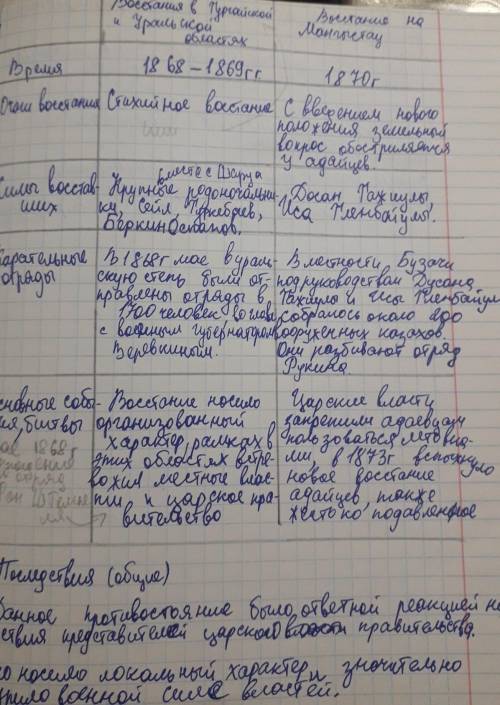 Восстания в Тургайской
и Уральской
областях
Восстание на
Мангыстау
Время
1868 – 1869 гг.
1870 г
Очаги восстания
Стихийное восстание
С введением нового
положения земельный
вопрос обострился
у адайцев.
Силы восстав-
ших
вместе с
Крупные родоначальни-
ки, Сейл Туркебаев,
Беркин Оспанов.
Досан Тажиулы,
Иса Тленбайулы.
Карательные
отряды
В 1868 г мае в ураль-
скую степь были от-
правлены отряды в
1700 человек во главе
с военным губернатором
Веревкиным.
В местности Бузачи
под руководством Дусана
Тажиулы и Исы Тленбайулы
собралось около 200
вооруженных казахов.
Они разбивают отряд
Рукина.
основные собы-
тия, битвы
мае 1868 г
отряда
фон Штемпе
Восстание носило
организованный
характер, рамках в
этих областях встре-
вожил местные влас-
ти и царское пра-
вительство
Царские власти
запрещили адаевцам
пользоваться летовка-
ми, в 1873 г вспыхнуло
новое восстание
адайцев, также
жестоко подавленное
Последствия (общие)
Данное противостояние было ответной реакцией на
ствия представителей царского правительства.
но носило локальный характер и значительно
упило военной силе властей.